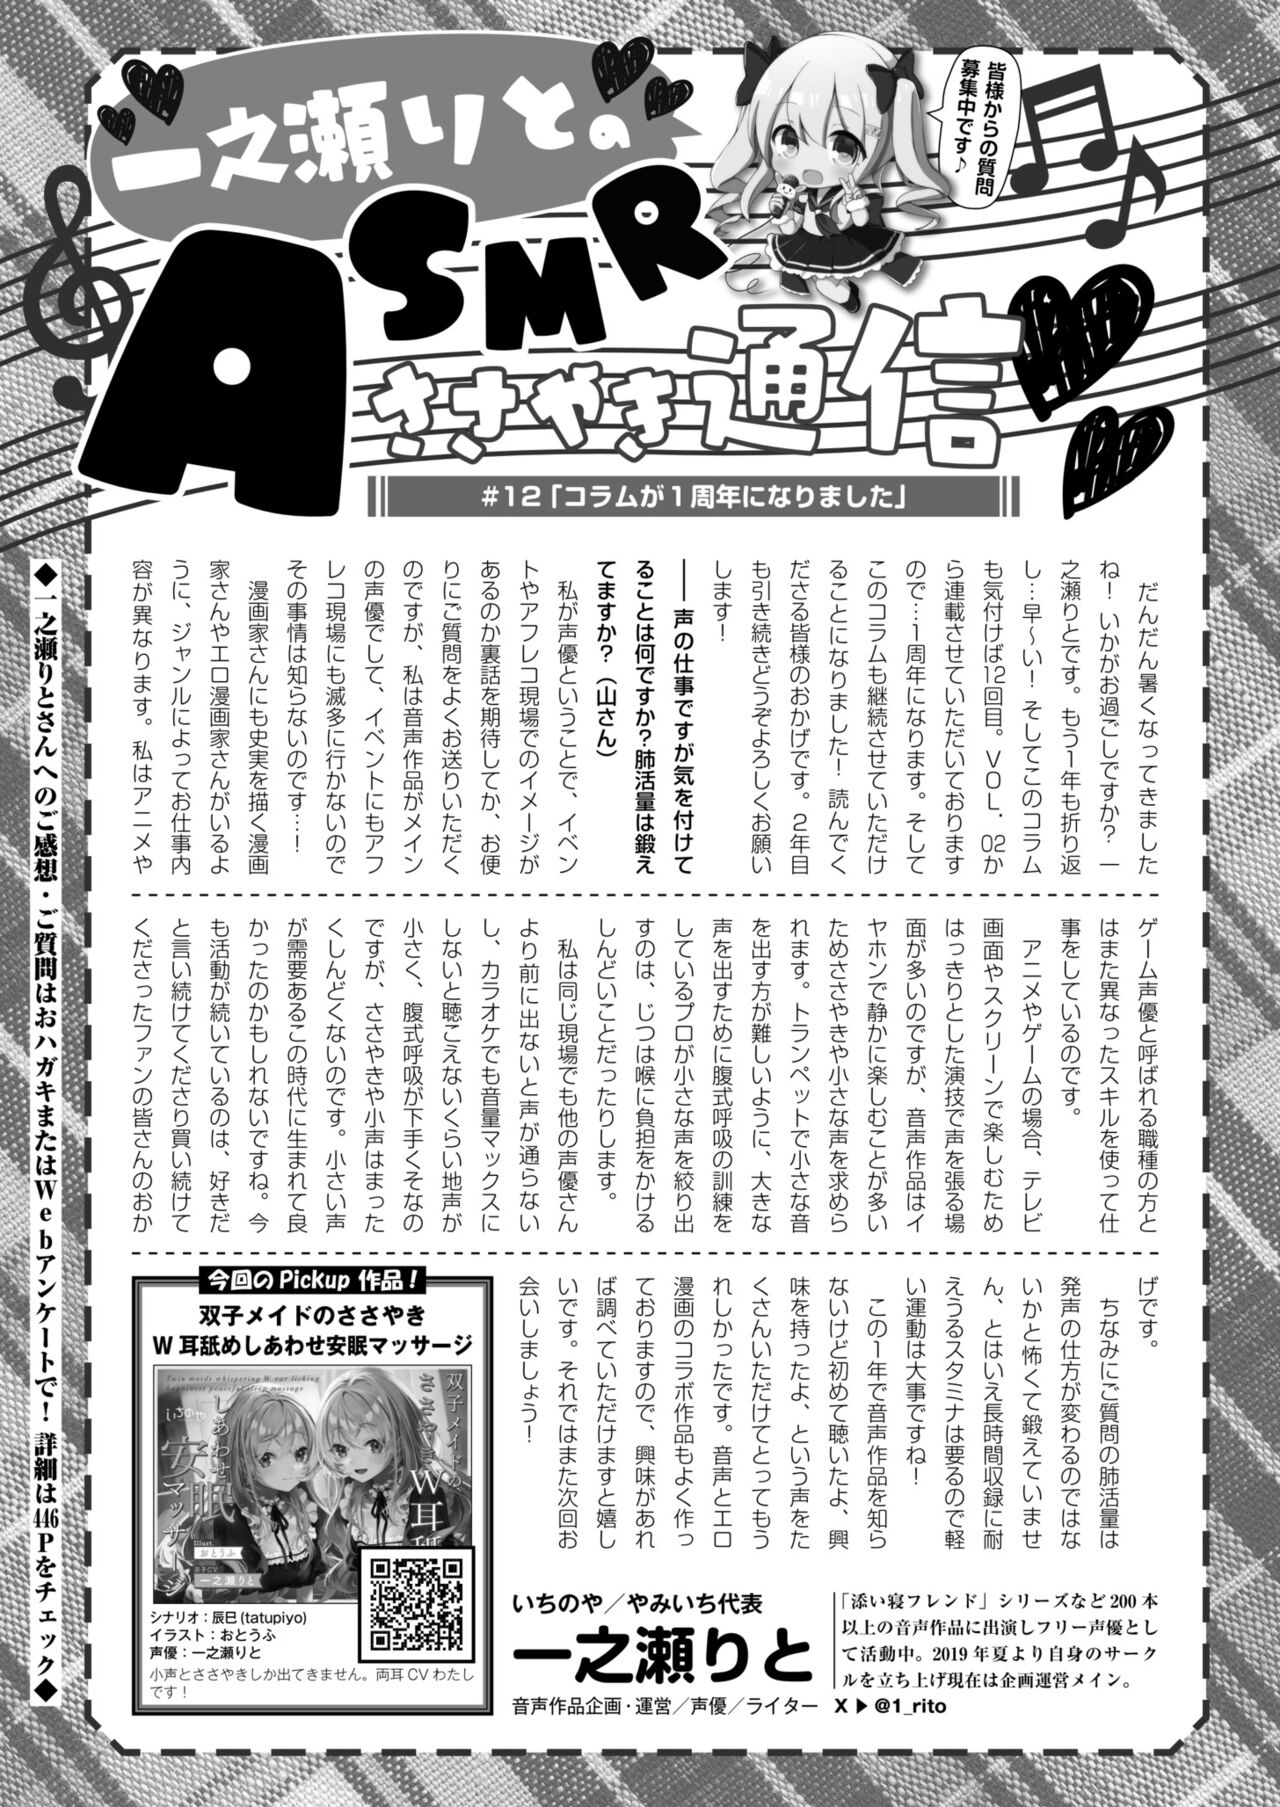 一之瀬りとの
ASMR
ささやき通信
皆様からの質問
募集中です♪
#12「コラムが1周年になりました」
だんだん暑くなってきました
ね！いかがお過ごしですか？一
之瀬りとです。もう1年も折り返
し…早〜い！そしてこのコラム
も気付けば12回目。VOL．02か
ら連載させていただいております
ので…1周年になります。そして
このコラムも継続させていただけ
ることになりました！読んでく
ださる皆様のおかげです。2年目
も引き続きどうぞよろしくお願い
します！
――声の仕事ですが気を付けて
ることは何ですか？肺活量は鍛え
てますか？（山さん）
私が声優ということで、イベン
トやアフレコ現場でのイメージが
あるのか裏話を期待してか、お便
りにご質問をよくお送りいただく
のですが、私は音声作品がメイン
の声優でして、イベントにもアフ
レコ現場にも滅多に行かないので
その事情は知らないのです…！
漫画家さんにも史実を描く漫画
家さんやエロ漫画家さんがいるよ
うに、ジャンルによってお仕事内
容が異なります。私はアニメや
ゲーム声優と呼ばれる職種の方と
はまた異なったスキルを使って仕
事をしているのです。
アニメやゲームの場合、テレビ
画面やスクリーンで楽しむため
はっきりとした演技で声を張る場
面が多いのですが、音声作品はイ
ヤホンで静かに楽しむことが多い
ためささやきや小さな声を求めら
れます。トランペットで小さな音
を出す方が難しいように、大きな
声を出すために腹式呼吸の訓練を
しているプロが小さな声を絞り出
すのは、じつは喉に負担をかける
しんどいことだったりします。
私は同じ現場でも他の声優さん
より前に出ないと声が通らない
し、カラオケでも音量マックスに
しないと聴こえないくらい地声が
小さく、腹式呼吸が下手くそなの
ですが、ささやきや小声はまった
くしんどくないのです。小さい声
が需要あるこの時代に生まれて良
かったのかもしれないですね。今
も活動が続いているのは、好きだ
と言い続けてくださり買い続けて
くださったファンの皆さんのおか
げです。
ちなみにご質問の肺活量は
発声の仕方が変わるのではな
いかと怖くて鍛えていませ
ん、とはいえ長時間収録に耐
えうるスタミナは要るので軽
い運動は大事ですね！
この1年で音声作品を知ら
ないけど初めて聴いたよ、興
味を持ったよ、という声をた
くさんいただけてとってもう
れしかったです。音声とエロ
漫画のコラボ作品もよく作っ
ておりますので、興味があれ
ば調べていただけますと嬉し
いです。それではまた次回お
会いしましょう！
今回のPickup作品！
双子メイドのささやき
W耳舐めしあわせ安眠マッサージ
Twin maids whispering W ear licking
happiness peaceful sleep massage
双子メイドの
ささやきW耳舐
しあわせ
安眠
マッサージ
いちのや
Illust.
おとうふ
双子CV.
一之瀬りと
シナリオ：辰巳(tatupiyo)
イラスト：おとうふ
声優：一之瀬りと
小声とささやきしか出てきません。両耳CVわたし
です！
いちのや／やみいち代表
一之瀬りと
音声作品企画・運営／声優／ライター
「添い寝フレンド」シリーズなど200本
以上の音声作品に出演しフリー声優とし
て活動中。2019年夏より自身のサーク
ルを立ち上げ現在は企画運営メイン。
X▶@1_rito
◆一之瀬りとさんへのご感想・ご質問はおハガキまたはWebアンケートで！詳細は446Pをチェック◆